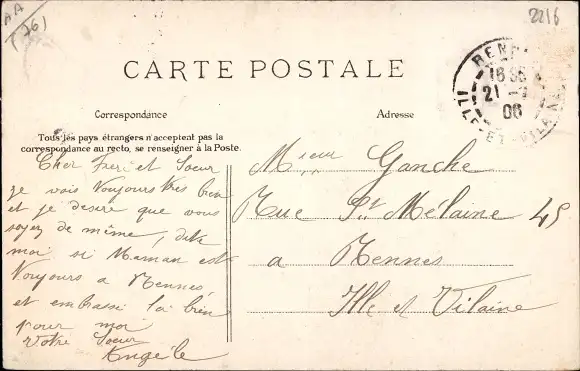 AA
(26)
2216
CARTE POSTALE
RENNES
21
06
ILLE-ET-VILAINE
Correspondance
Adresse
Tous les pays étrangers n'acceptent pas la
correspondance au recto, se renseigner à la Poste.
Cher Frere et Soeur
je vais toujours très bien
et je desire que vous
soyez de même, dite
moi si Maman est
toujours a Rennes,
et embrassé la bien
pour moi
Votre Soeur
Angèle
Mʳieur Ganche
Rue St Mélaine 45
a Rennes
Ille et Vilaine